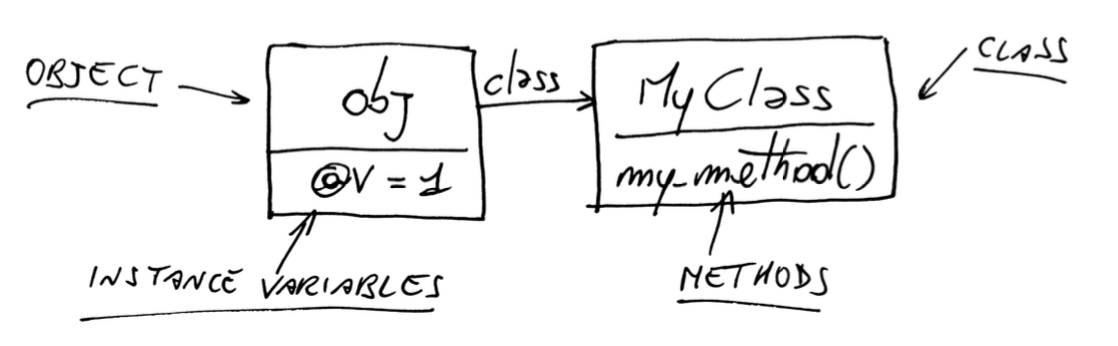 OBJECT
obj
@v = 1
class
MyClass
my_method()
CLASS
INSTANCE VARIABLES
METHODS